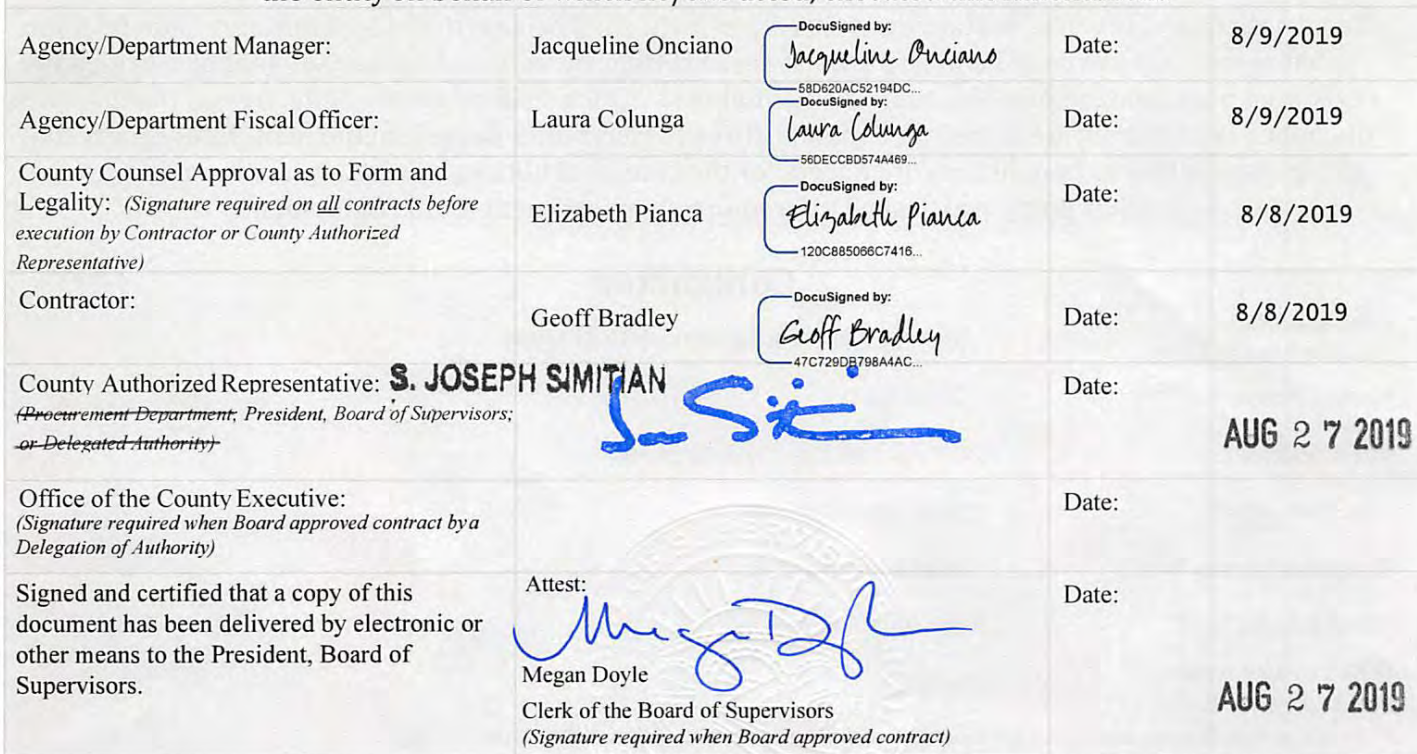 Agency/Department Manager: Jacqueline Onciano DocuSigned by: Jacqueline Onciano 58D620AC52194DC... Date: 8/9/2019
Agency/Department Fiscal Officer: Laura Colunga DocuSigned by: Laura Colunga 56DECCBD574A469... Date: 8/9/2019
County Counsel Approval as to Form and
Legality: (Signature required on all contracts before
execution by Contractor or County Authorized
Representative)
Elizabeth Pianca DocuSigned by: Elizabeth Pianca 120C885066C7416... Date: 8/8/2019
Contractor: Geoff Bradley DocuSigned by: Geoff Bradley 47C729DB798A4AC... Date: 8/8/2019
County Authorized Representative: S. JOSEPH SIMITIAN Date:
(Procurement Department, President, Board of Supervisors;
or Delegated Authority)
AUG 27 2019
Office of the County Executive: Date:
(Signature required when Board approved contract by a
Delegation of Authority)
Signed and certified that a copy of this
document has been delivered by electronic or
other means to the President, Board of
Supervisors.
Attest: Date:
Megan Doyle
Clerk of the Board of Supervisors
(Signature required when Board approved contract)
AUG 27 2019